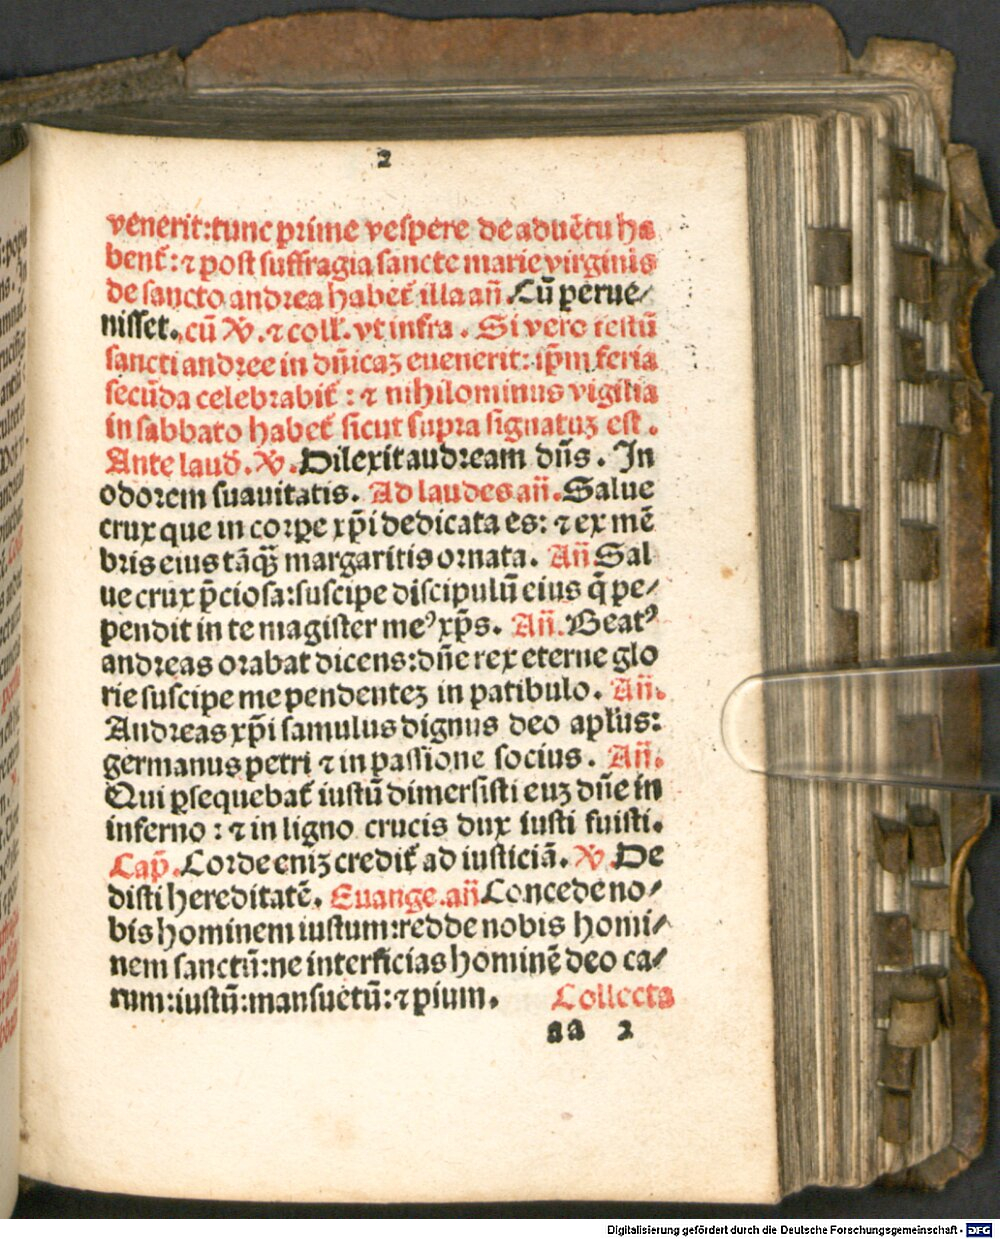 2
venerit:tunc prime vespere de aduẽtu ha
bent᷑:⁊ post suffragia sancte marie virginis
de sancto andrea habet᷑ illa an̄.Cū perue/
nisset.cū ℣.⁊ coll̄.vt infra. Si vero festū
sancti andree in dn̄icaꝫ euenerit:ip̄m feria
secūda celebrabit᷑:⁊ nihilominus vigilia
in sabbato habet᷑ sicut supra signatuꝫ est.
Ante laud.℣.Dilexit andream dn̄s. In
odorem suauitatis. Ad laudes an̄.Salue
crux que in corꝑe xp̄i dedicata es:⁊ ex mē
bris eius tāqꝫ̄ margaritis ornata. An̄ Sal
ue crux p̄ciosa:suscipe discipulū eius q̄ pe/
pendit in te magister meꝰ xp̄s. An̄.Beatꝰ
andreas orabat dicens:dn̄e rex eterne glo
rie suscipe me pendenteꝫ in patibulo. An̄.
Andreas xp̄i famulus dignus deo apl̄us:
germanus petri ⁊ in passione socius. An̄.
Qui ꝑsequebat᷑ iustū dimersisti euꝫ dn̄e in
inferno:⁊ in ligno crucis dux iusti fuisti.
Cap̄.Corde eniꝫ credit᷑ ad iusticiā.℣.De
disti hereditatē. Euange.an̄ Concede no/
bis hominem iustum:redde nobis homi/
nem sanctū:ne interficias hominē deo ca/
rum:iustū:mansuetū:⁊ pium. Collecta
aa 2
Digitalisierung gefördert durch die Deutsche Forschungsgemeinschaft - DFG